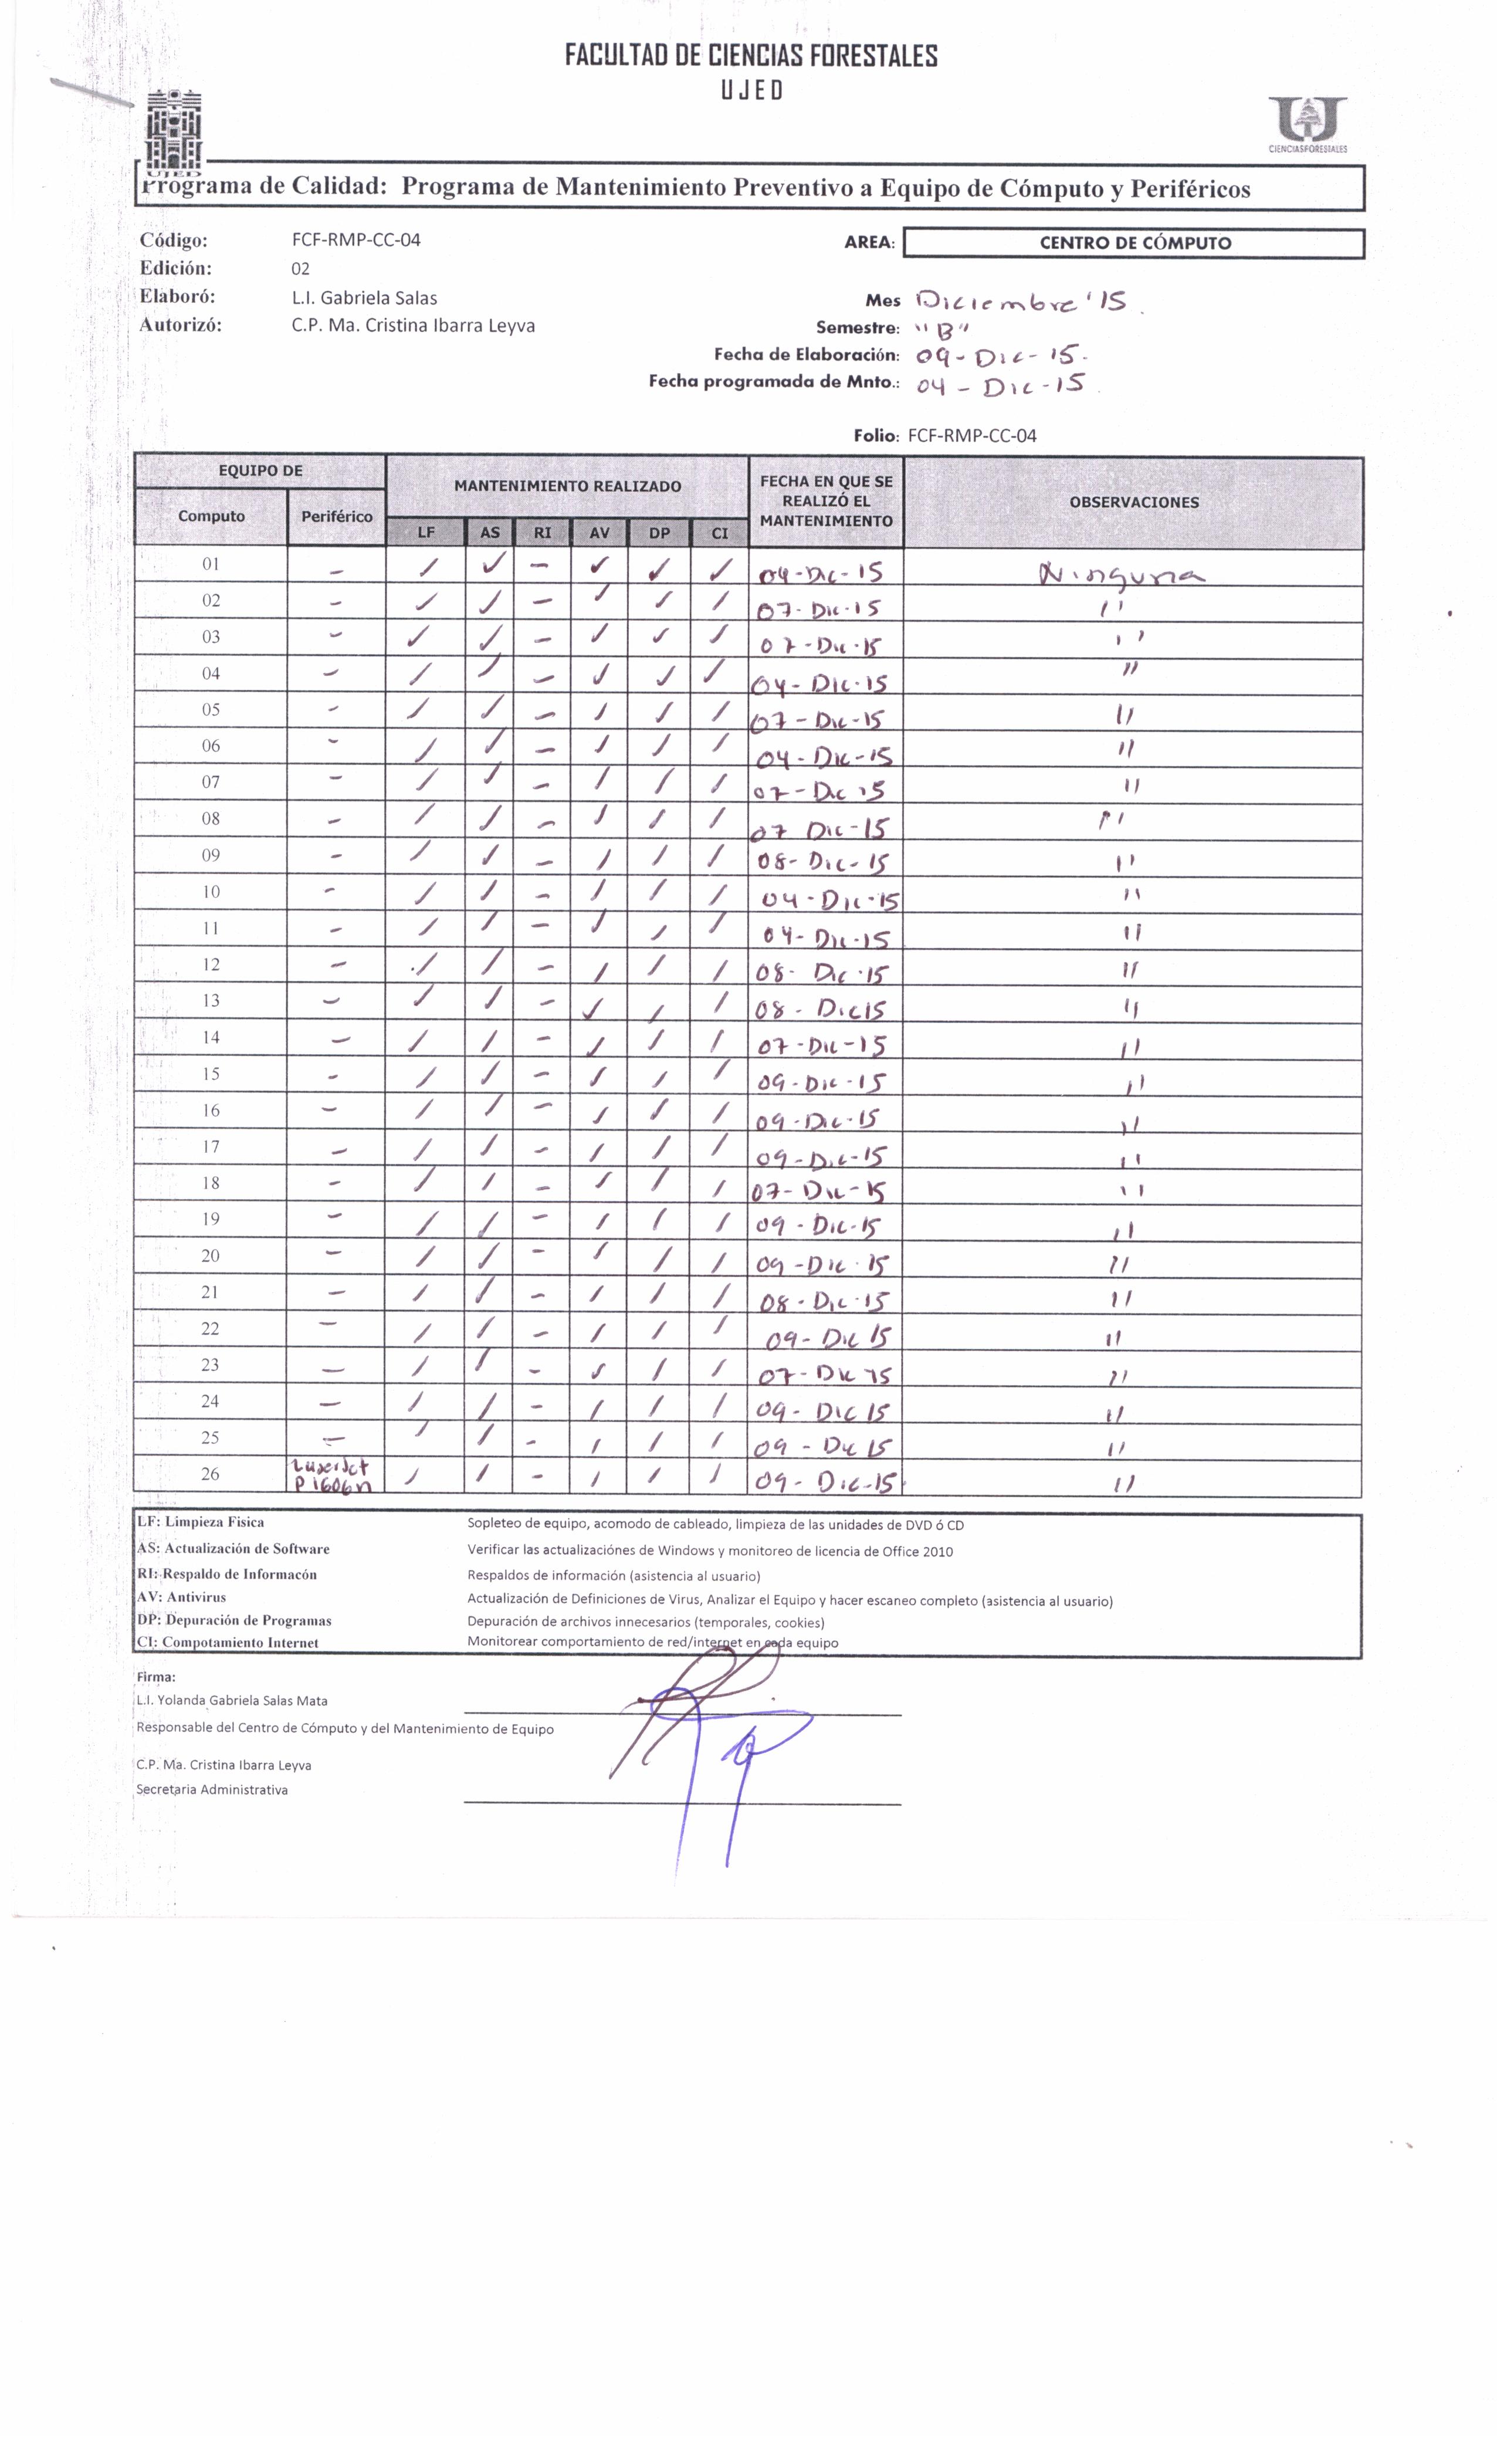 FACULTAD DE CIENCIAS FORESTALES
UJED
UJED
CIENCIASFORESTALES
Programa de Calidad: Programa de Mantenimiento Preventivo a Equipo de Cómputo y Periféricos
Código: FCF-RMP-CC-04 AREA: CENTRO DE CÓMPUTO
Edición: 02
Elaboró: L.I. Gabriela Salas Mes Diciembre '15.
Autorizó: C.P. Ma. Cristina Ibarra Leyva Semestre: "B"
Fecha de Elaboración: 09-Dic-15.
Fecha programada de Mnto.: 04-Dic-15.
Folio: FCF-RMP-CC-04
EQUIPO DE MANTENIMIENTO REALIZADO FECHA EN QUE SE REALIZÓ EL MANTENIMIENTO OBSERVACIONES
Computo Periférico LF AS RI AV DP CI
01 - ✓ ✓ - ✓ ✓ ✓ 04-Dic-15 Ninguna
02 - ✓ ✓ - ✓ ✓ ✓ 07-Dic-15 "
03 - ✓ ✓ - ✓ ✓ ✓ 07-Dic-15 "
04 - ✓ ✓ - ✓ ✓ ✓ 04-Dic-15 "
05 - ✓ ✓ - ✓ ✓ ✓ 07-Dic-15 "
06 - ✓ ✓ - ✓ ✓ ✓ 04-Dic-15 "
07 - ✓ ✓ - ✓ ✓ ✓ 07-Dic 15 "
08 - ✓ ✓ - ✓ ✓ ✓ 07 Dic-15 "
09 - ✓ ✓ - ✓ ✓ ✓ 08-Dic-15 "
10 - ✓ ✓ - ✓ ✓ ✓ 04-Dic-15 "
11 - ✓ ✓ - ✓ ✓ ✓ 04-Dic-15 "
12 - ✓ ✓ - ✓ ✓ ✓ 08-Dic-15 "
13 - ✓ ✓ - ✓ ✓ ✓ 08-Dic15 "
14 - ✓ ✓ - ✓ ✓ ✓ 07-Dic-15 "
15 - ✓ ✓ - ✓ ✓ ✓ 09-Dic-15 "
16 - ✓ ✓ - ✓ ✓ ✓ 09-Dic-15 "
17 - ✓ ✓ - ✓ ✓ ✓ 09-Dic-15 "
18 - ✓ ✓ - ✓ ✓ ✓ 07-Dic-15 "
19 - ✓ ✓ - ✓ ✓ ✓ 09-Dic-15 "
20 - ✓ ✓ - ✓ ✓ ✓ 09-Dic-15 "
21 - ✓ ✓ - ✓ ✓ ✓ 08-Dic-15 "
22 - ✓ ✓ - ✓ ✓ ✓ 09-Dic 15 "
23 - ✓ ✓ - ✓ ✓ ✓ 07-Dic 15 "
24 - ✓ ✓ - ✓ ✓ ✓ 09-Dic 15 "
25 - ✓ ✓ - ✓ ✓ ✓ 09-Dic 15 "
26 LaserJet P1606n ✓ ✓ - ✓ ✓ ✓ 09-Dic-15 "
LF: Limpieza Fisica Sopleteo de equipo, acomodo de cableado, limpieza de las unidades de DVD ó CD
AS: Actualización de Software Verificar las actualizaciónes de Windows y monitoreo de licencia de Office 2010
RI: Respaldo de Informacón Respaldos de información (asistencia al usuario)
AV: Antivirus Actualización de Definiciones de Virus, Analizar el Equipo y hacer escaneo completo (asistencia al usuario)
DP: Depuración de Programas Depuración de archivos innecesarios (temporales, cookies)
CI: Compotamiento Internet Monitorear comportamiento de red/internet en cada equipo
Firma:
L.I. Yolanda Gabriela Salas Mata
Responsable del Centro de Cómputo y del Mantenimiento de Equipo
C.P. Ma. Cristina Ibarra Leyva
Secretaria Administrativa